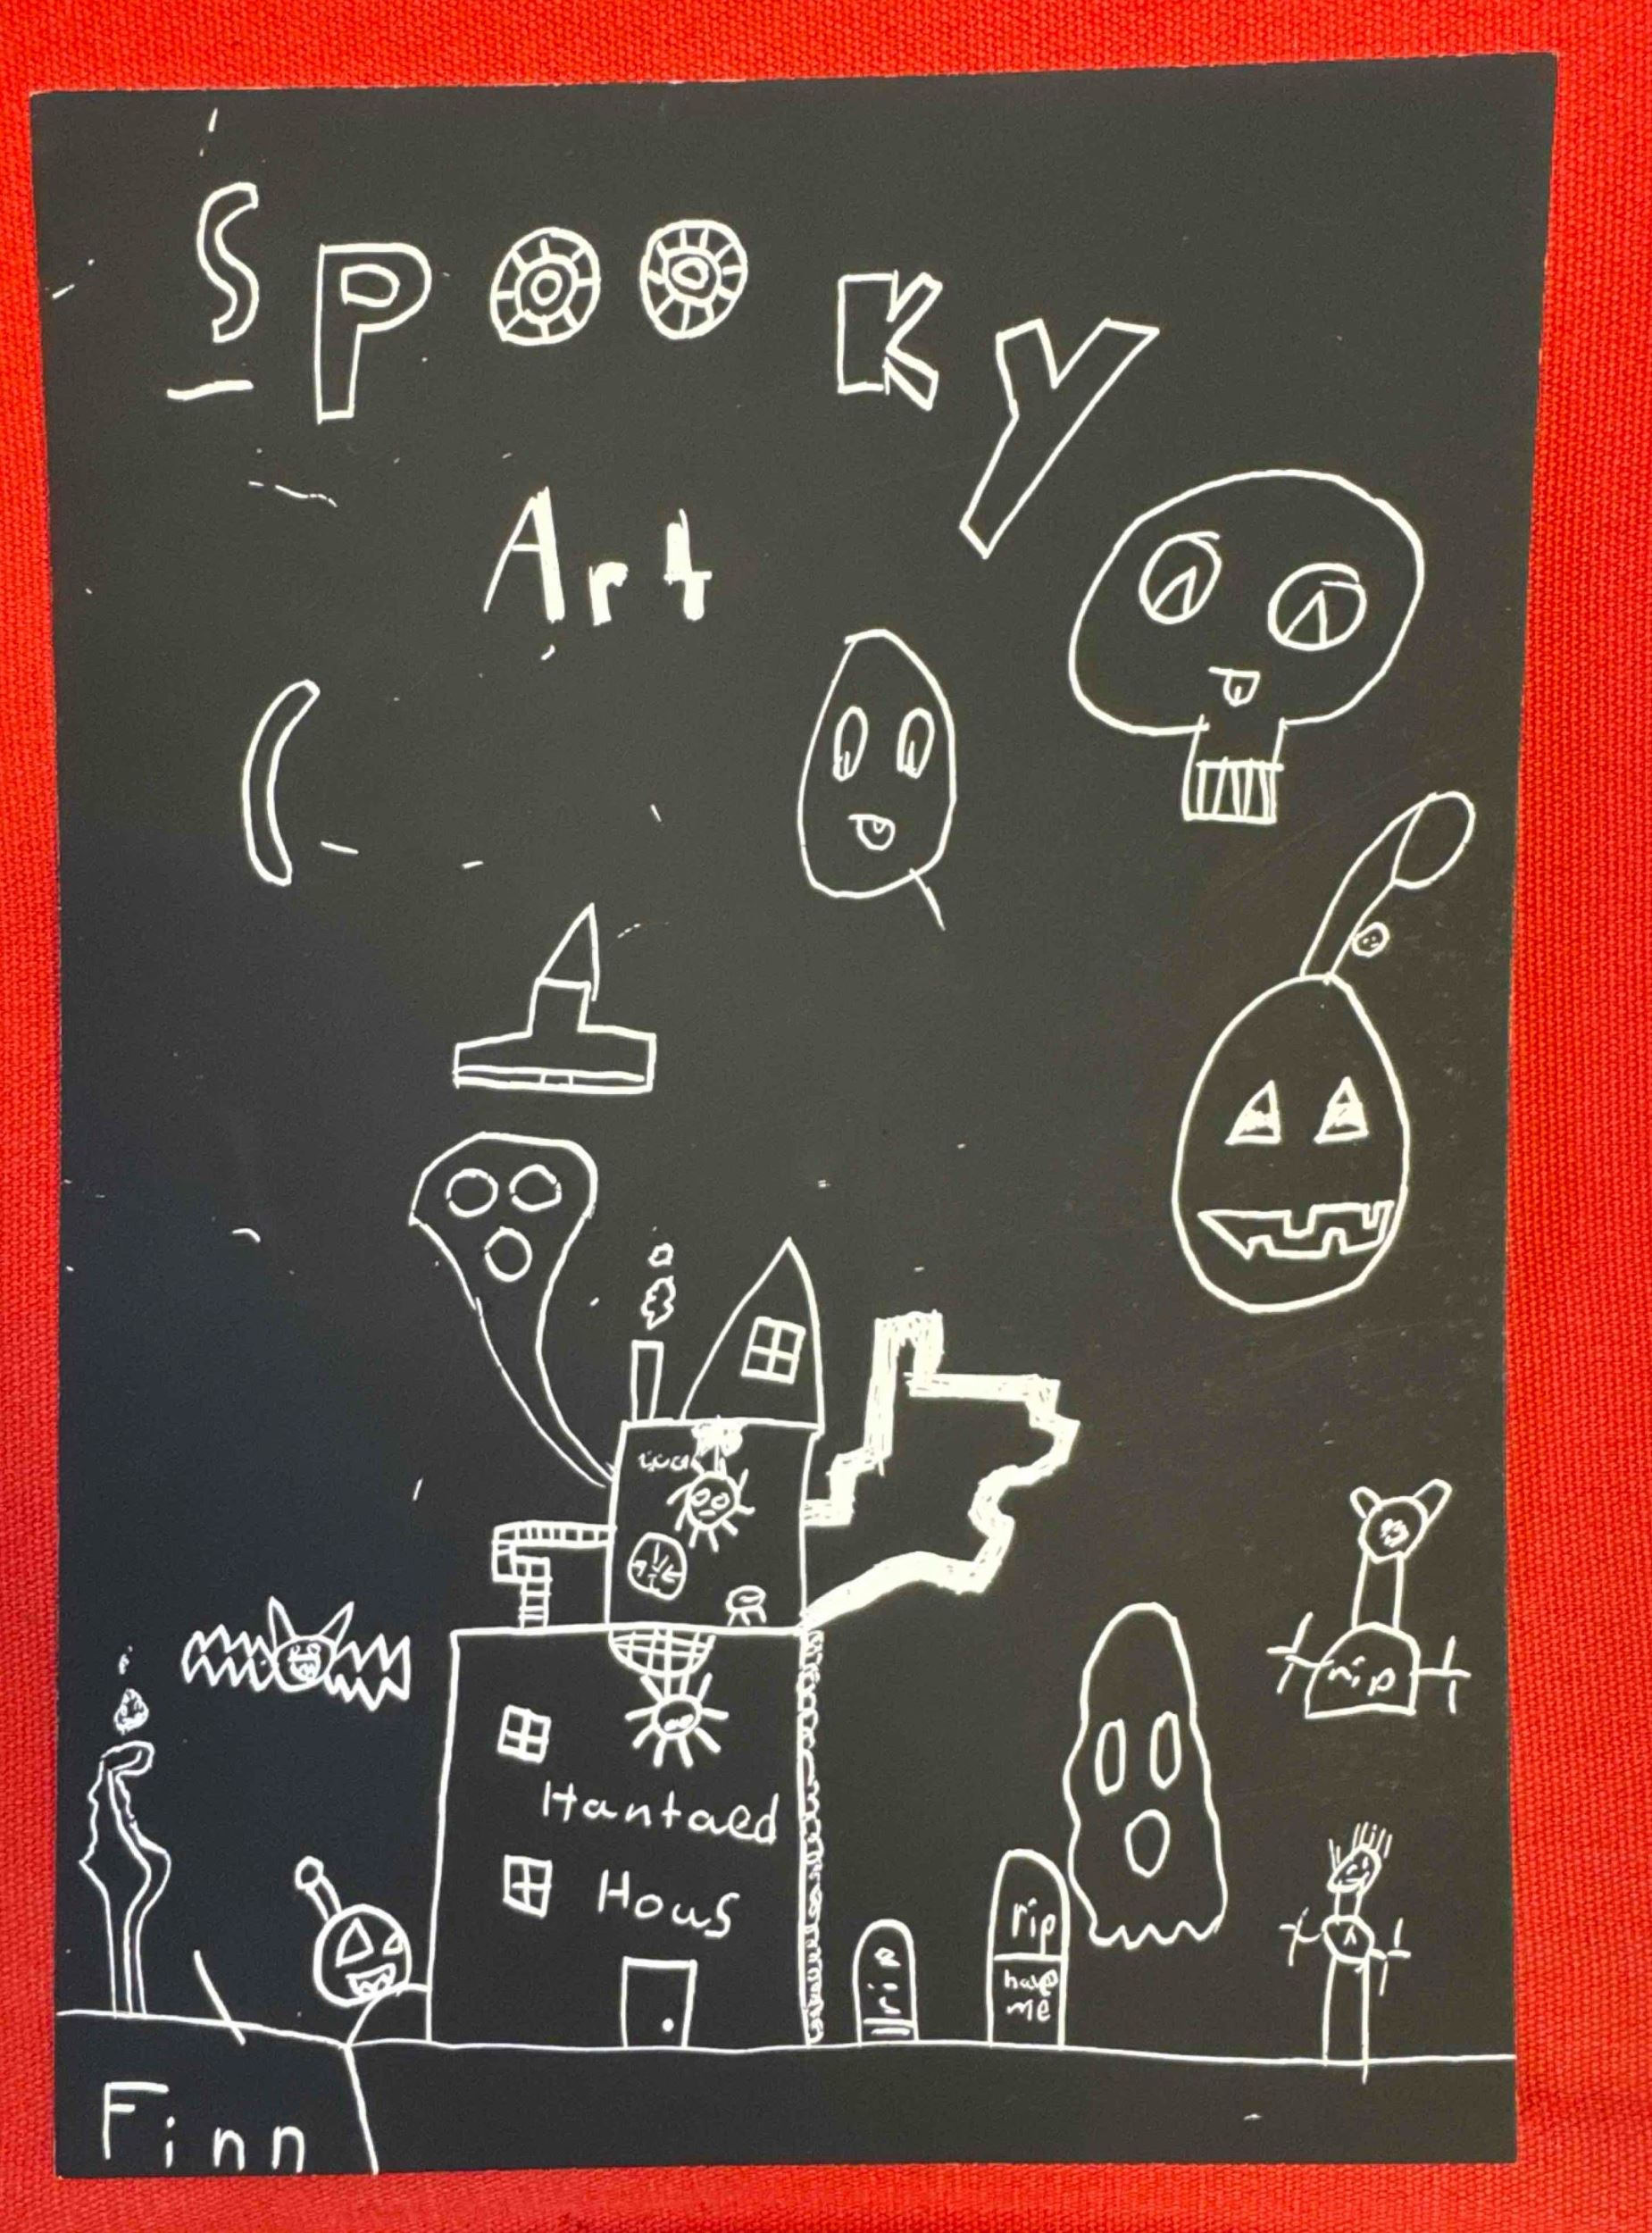 Spooky
Art
rip
Hantaed
Hous
rip
rip
me
Finn